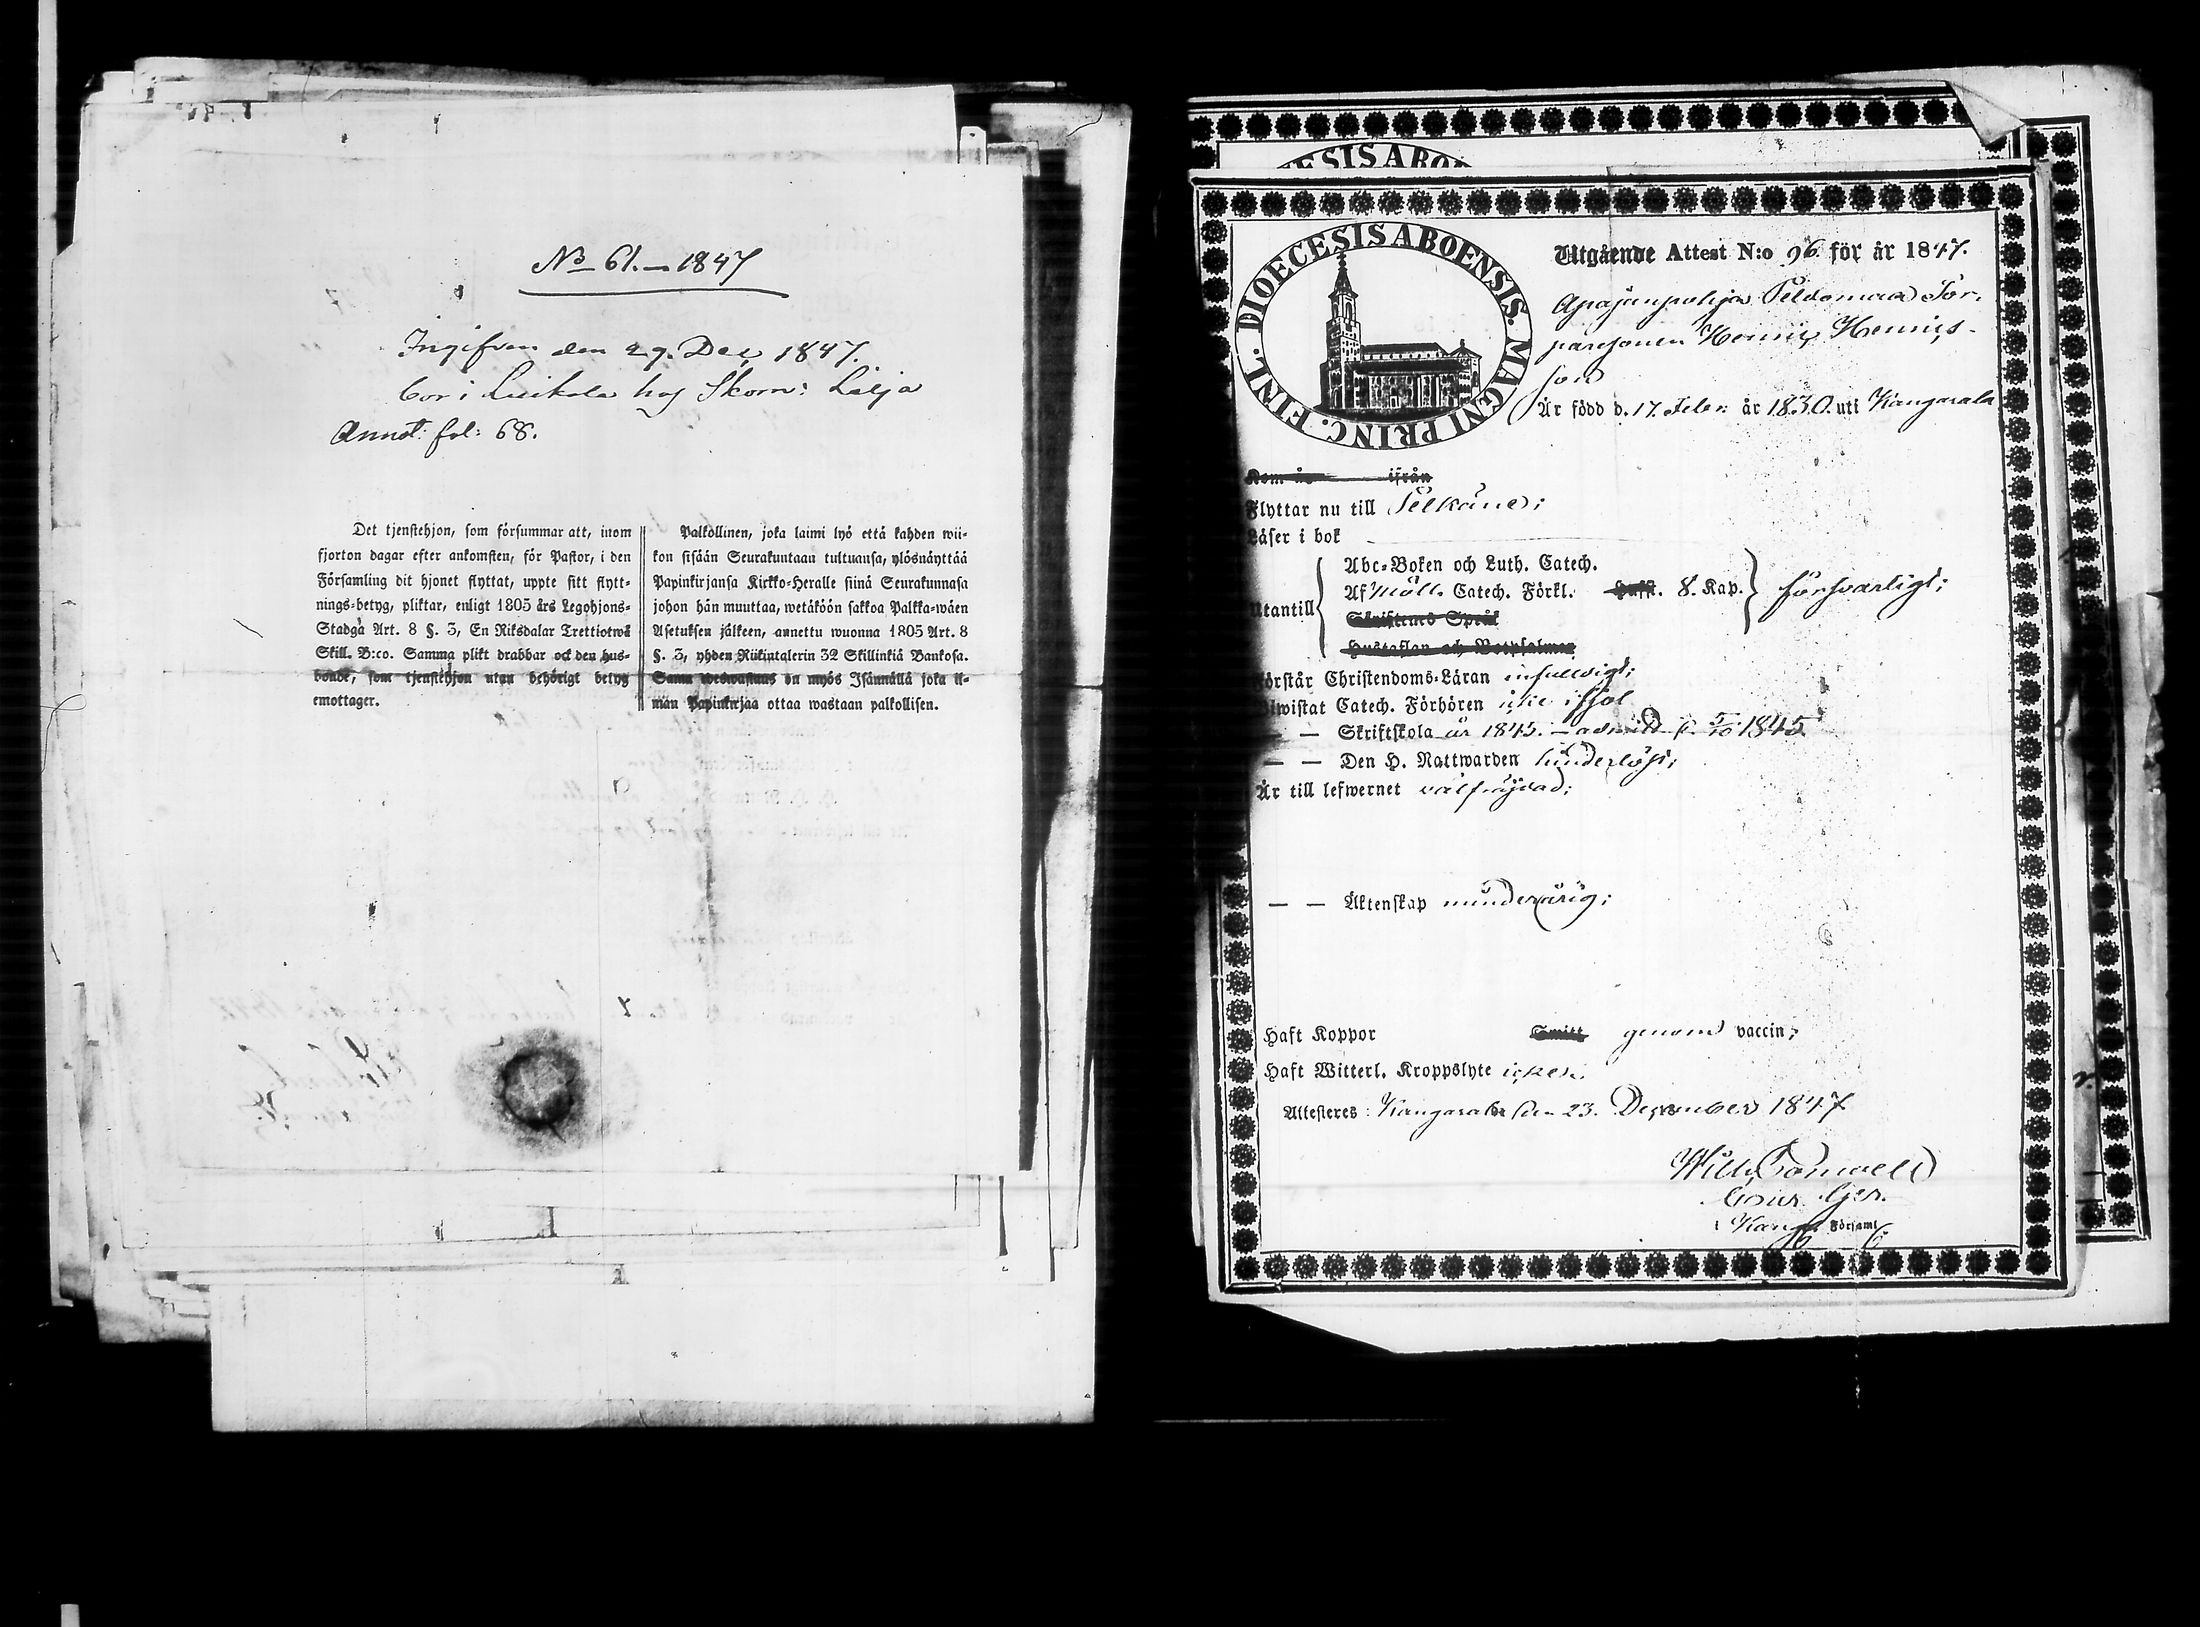 No 61. — 1847
Ingifven den 29. Dec 1847.
Bor i Luikala hos Skom: Lilja
Annot: fol: 68.
Det tjenstehjon, som försummar att, inom
fjorton dagar efter ankomsten, för Pastor, i den
Församling dit hjonet flyttat, uppte sitt flytt-
nings-betyg, pliktar, enligt 1805 års Legohjons-
Stadga Art. 8 §. 3, En Riksdalar Trettiotwå
Skill. B:co. Samma plikt drabbar ock den hus-
bonde, som tjenstehjon utan behörigt betyg
emottager.
Palkollinen, joka laimi lyö että kahden wii-
kon sisään Seurakuntaan tultuansa, ylösnäyttää
Papinkirjansa Kirkko-Heralle siinä Seurakunnasa
johon hän muuttaa, wetäköön sakkoa Palkka-wäen
Asetuksen jälkeen, annettu wuonna 1805 Art. 8
§. 3, yhden Riikintalerin 32 Skillinkiä Bankosa.
Sama wedwastuus on myös Isännällä joka il-
man Papinkirjaa ottaa wastaan palkollisen.
DIOECESIS ABO
DIOECESIS ABOENSIS. MAGNI PRINC. FINL.
Utgående Attest N:o 96 för år 1847.
Sor-
Henric Henrics-
son
Är född d. 17. Febr. år 1830. uti Kangasala
Kom år ifrån
Flyttar nu till Pelkäne;
Läser i bok
Utantill
Abc-Boken och Luth. Catech.
Af Möll. Catech. Förkl. 8. Kap. försvarligt;
Skriftens Språk
Hustaflan och Botpsalmer
Förstår Christendoms-Läran enfaldigt;
Biwistat Catech. Förhören
— — Skriftskola år 1845. — admitt. d. 5/10 1845
— — Den H. Nattwarden hinderlöst;
Är till lefwernet välfräjdad;
— — Äktenskap minderårig;
Haft Koppor Smitt genom vaccin;
Haft Witterl. Kroppslyte icke;
Attesteres: Kangasala den 23. December 1847
Församl